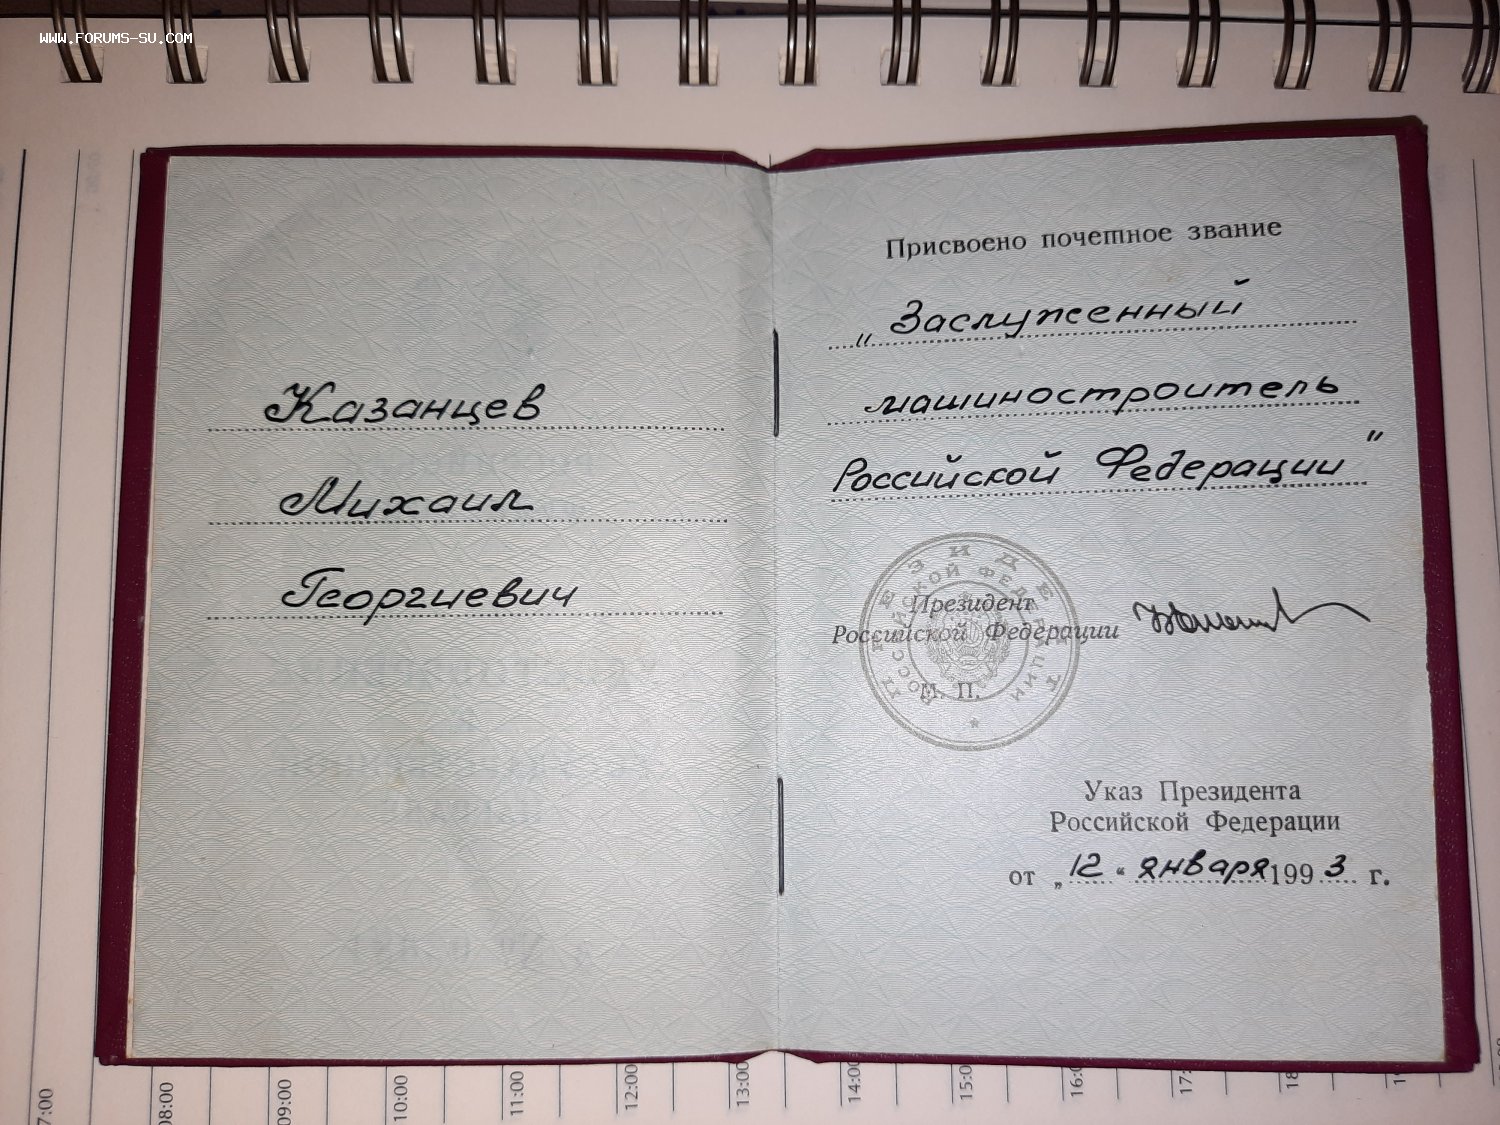 WWW.FORUMS-SU.COM
Казанцев
Михаил
Георгиевич
Присвоено почетное звание
„Заслуженный
машиностроитель
Российской Федерации"
ПРЕЗИДЕНТ
РОССИЙСКОЙ ФЕДЕРАЦИИ
Президент
Российской Федерации
М. П.
Указ Президента
Российской Федерации
от „12“ января 1993 г.
7:00
08:00
09:00
10:00
11:00
12:00
13:00
14:00
15:0
16:0
17:
18
19